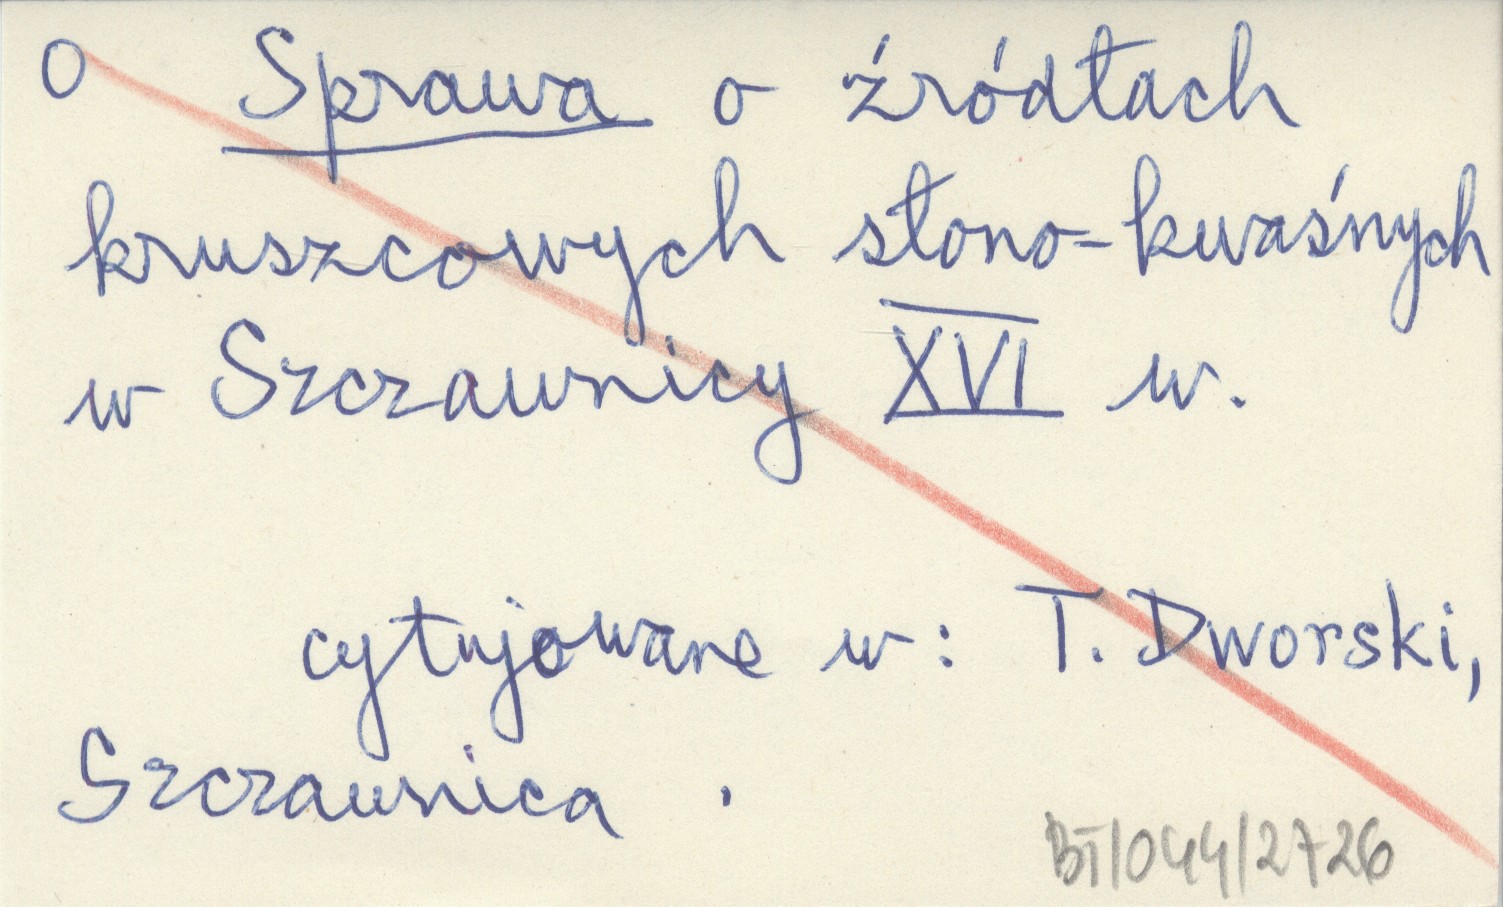 O Sprawa o źródłach
kruszcowych słono-kwaśnych
w Szczawnicy XVI w.
cytujowane w: T. Dworski,
Szczawnica .
BT/044/2726